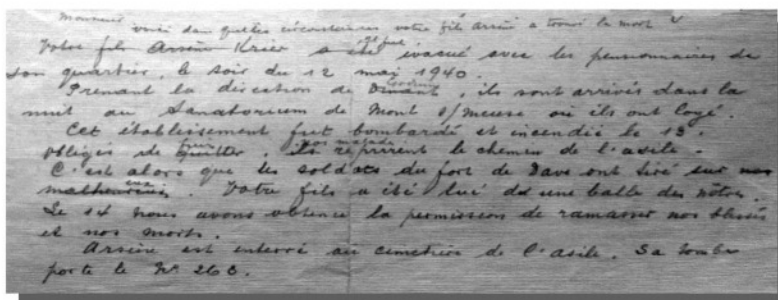 Monsieur
voici dans quelles circonstances votre fils Arsène a trouvé la mort
Votre fils Arsène Krier a été évacué avec les pensionnaires de
son quartier, le soir du 12 mai 1940.
Prenant la direction de Dinant, ils sont arrivés dans la
nuit au Sanatorium de Mont s/meuse où ils ont logé.
Cet établissement fut bombardé et incendié le 13.
Obligés de quitter, nos malades reprirent le chemin de l'asile.
C'est alors que les soldats du fort de Dave ont tiré sur nos
malheureux. Votre fils a été tué d'une balle des nôtres.
Le 14 nous avons obtenu la permission de ramasser nos blessés
et nos morts.
Arsène est enterré au cimetière de l'asile. Sa tombe
porte le N°